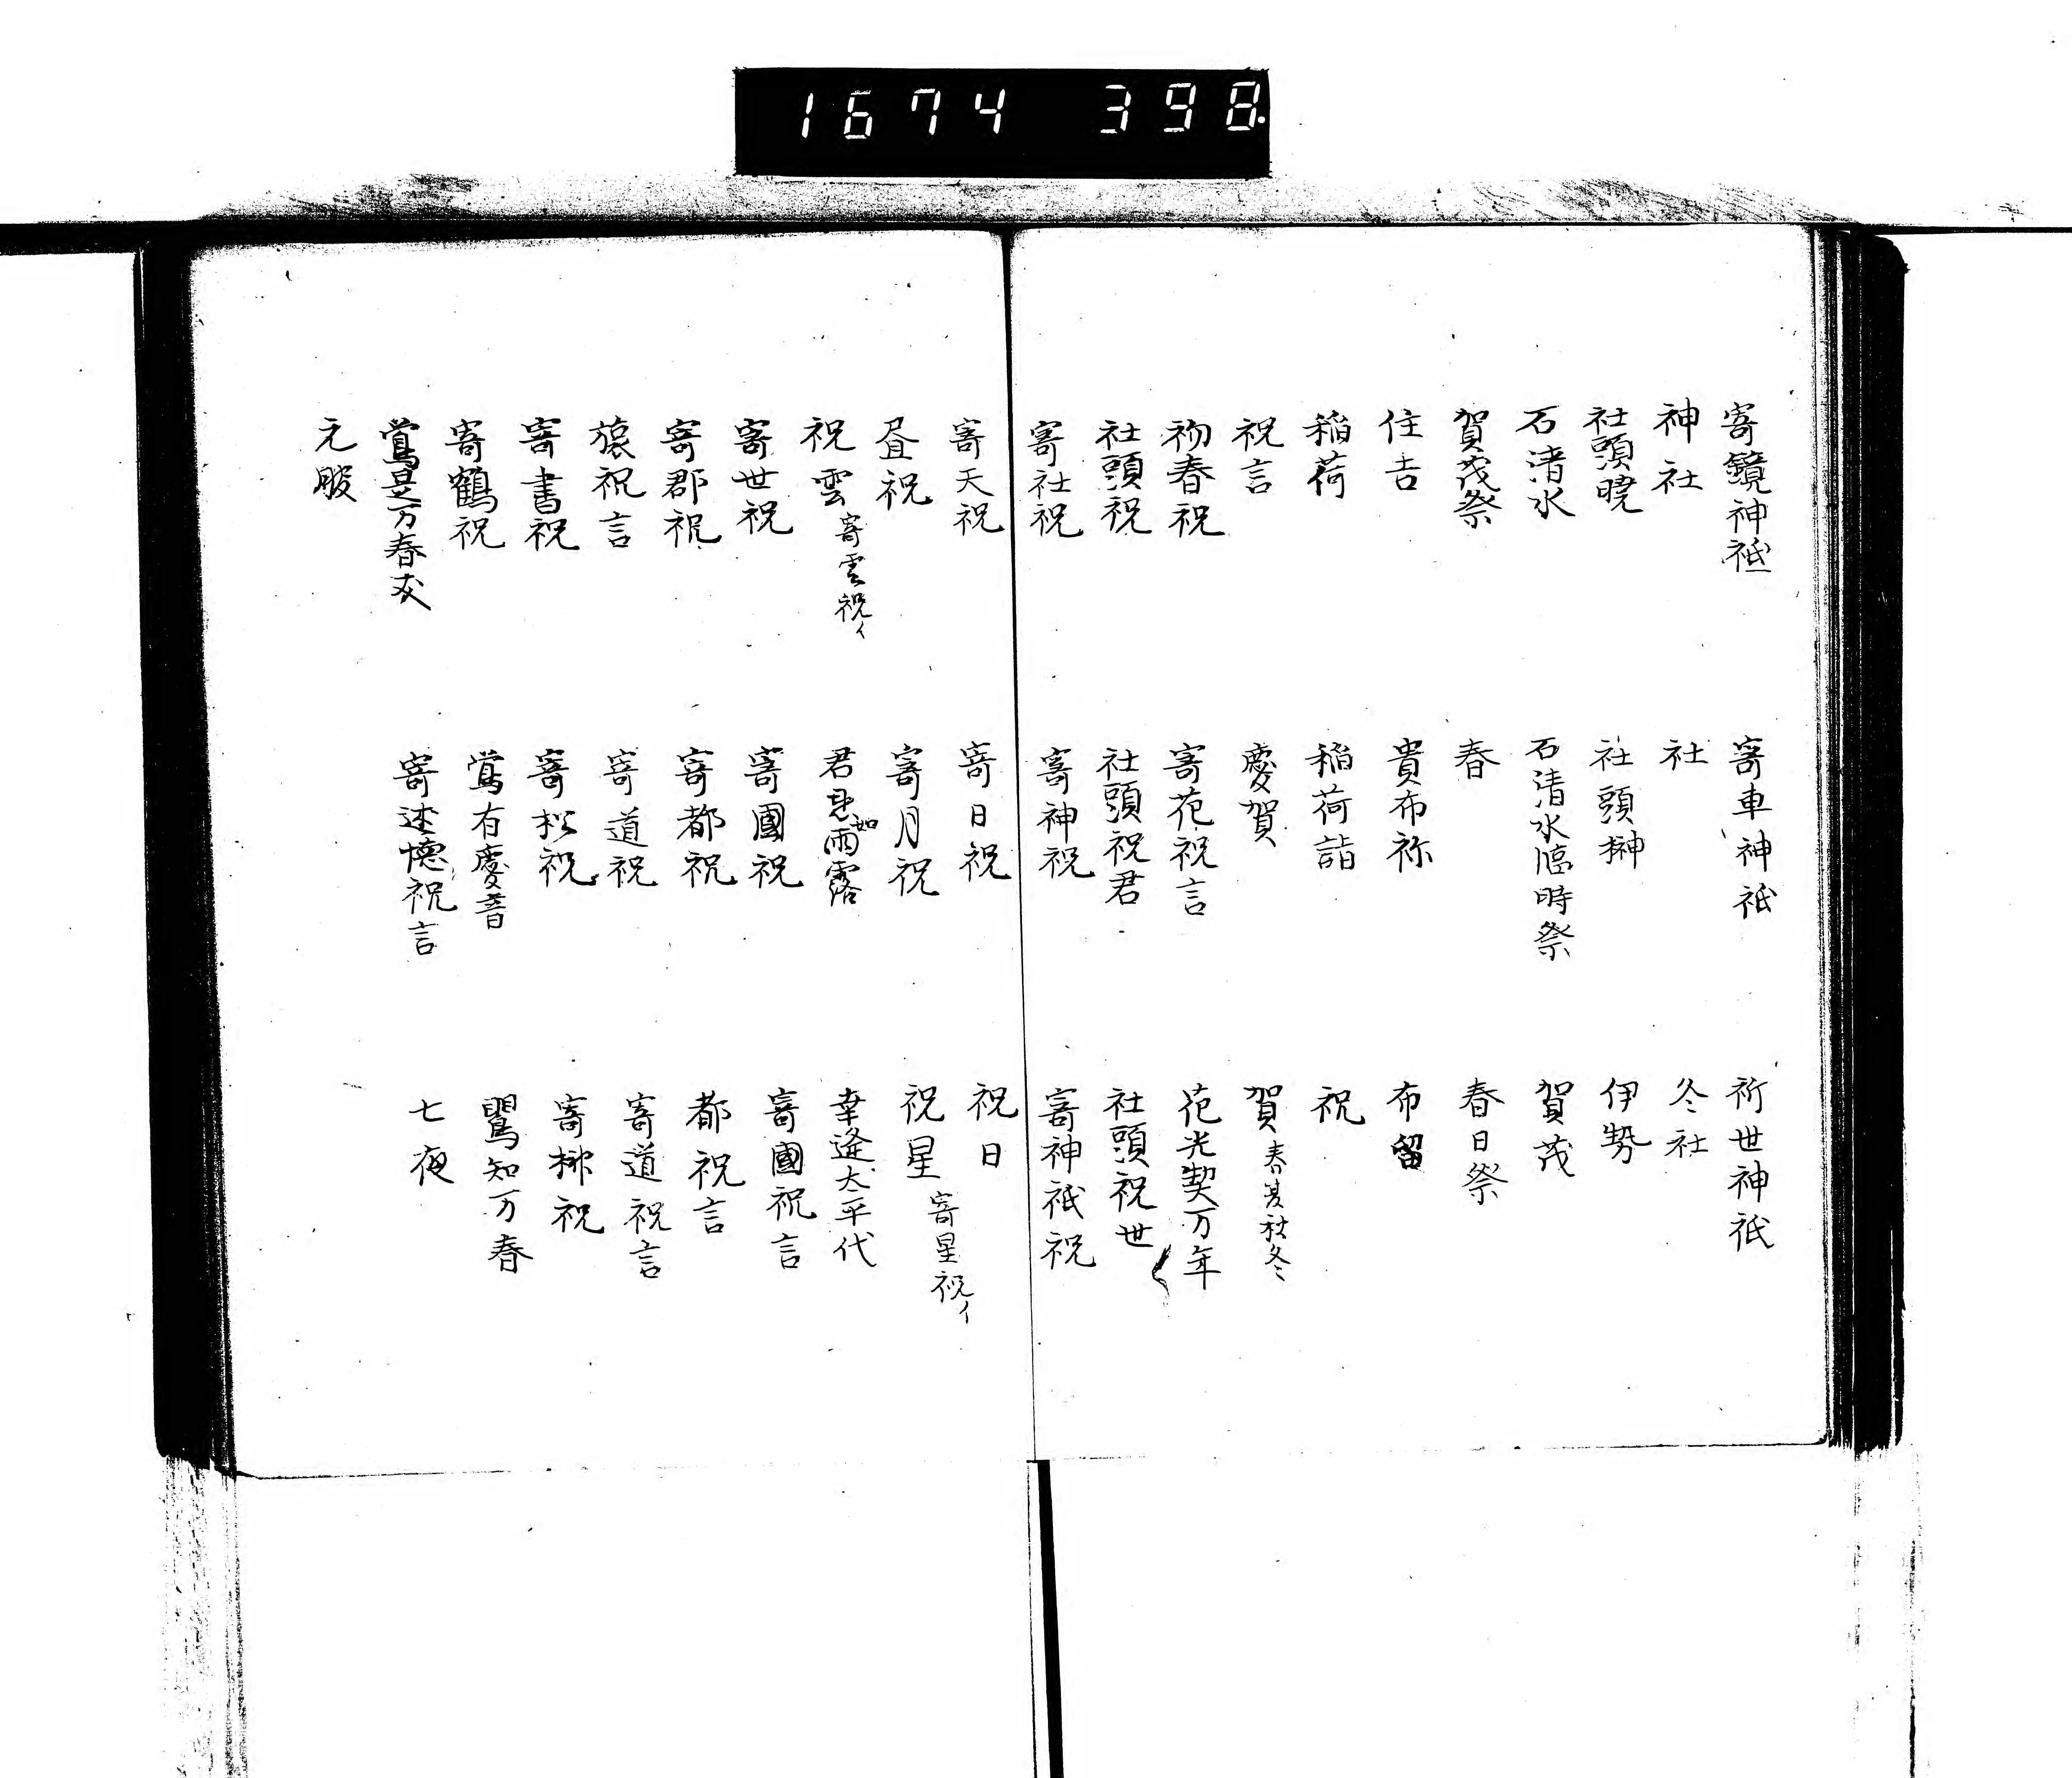 1674 398.
寄鏡神祇 寄車神祇 祈世神祇
神社 社 冬社
社頭暁 社頭榊 伊勢
石清水 石清水臨時祭 賀茂
賀茂祭 春 春日祭
住吉 貴布祢 布留
稲荷 稲荷詣 祝
祝言 慶賀 賀 春夏秋冬
初春祝 寄花祝言 花光契万年
社頭祝 社頭祝君 社頭祝世
寄社祝 寄神祝 寄神祇祝
寄天祝 寄日祝 祝日
昼祝 寄月祝 祝星 寄星祝イ
祝雲 寄雲祝イ 君恩如雨露 幸逢太平代
寄世祝 寄國祝 寄國祝言
寄郡祝 寄都祝 都祝言
旅祝言 寄道祝 寄道祝言
寄書祝 寄松祝 寄椰祝
寄鶴祝 鶯有慶音 鶯知万春
鶯是万春友 寄述懐祝言 七夜
元服